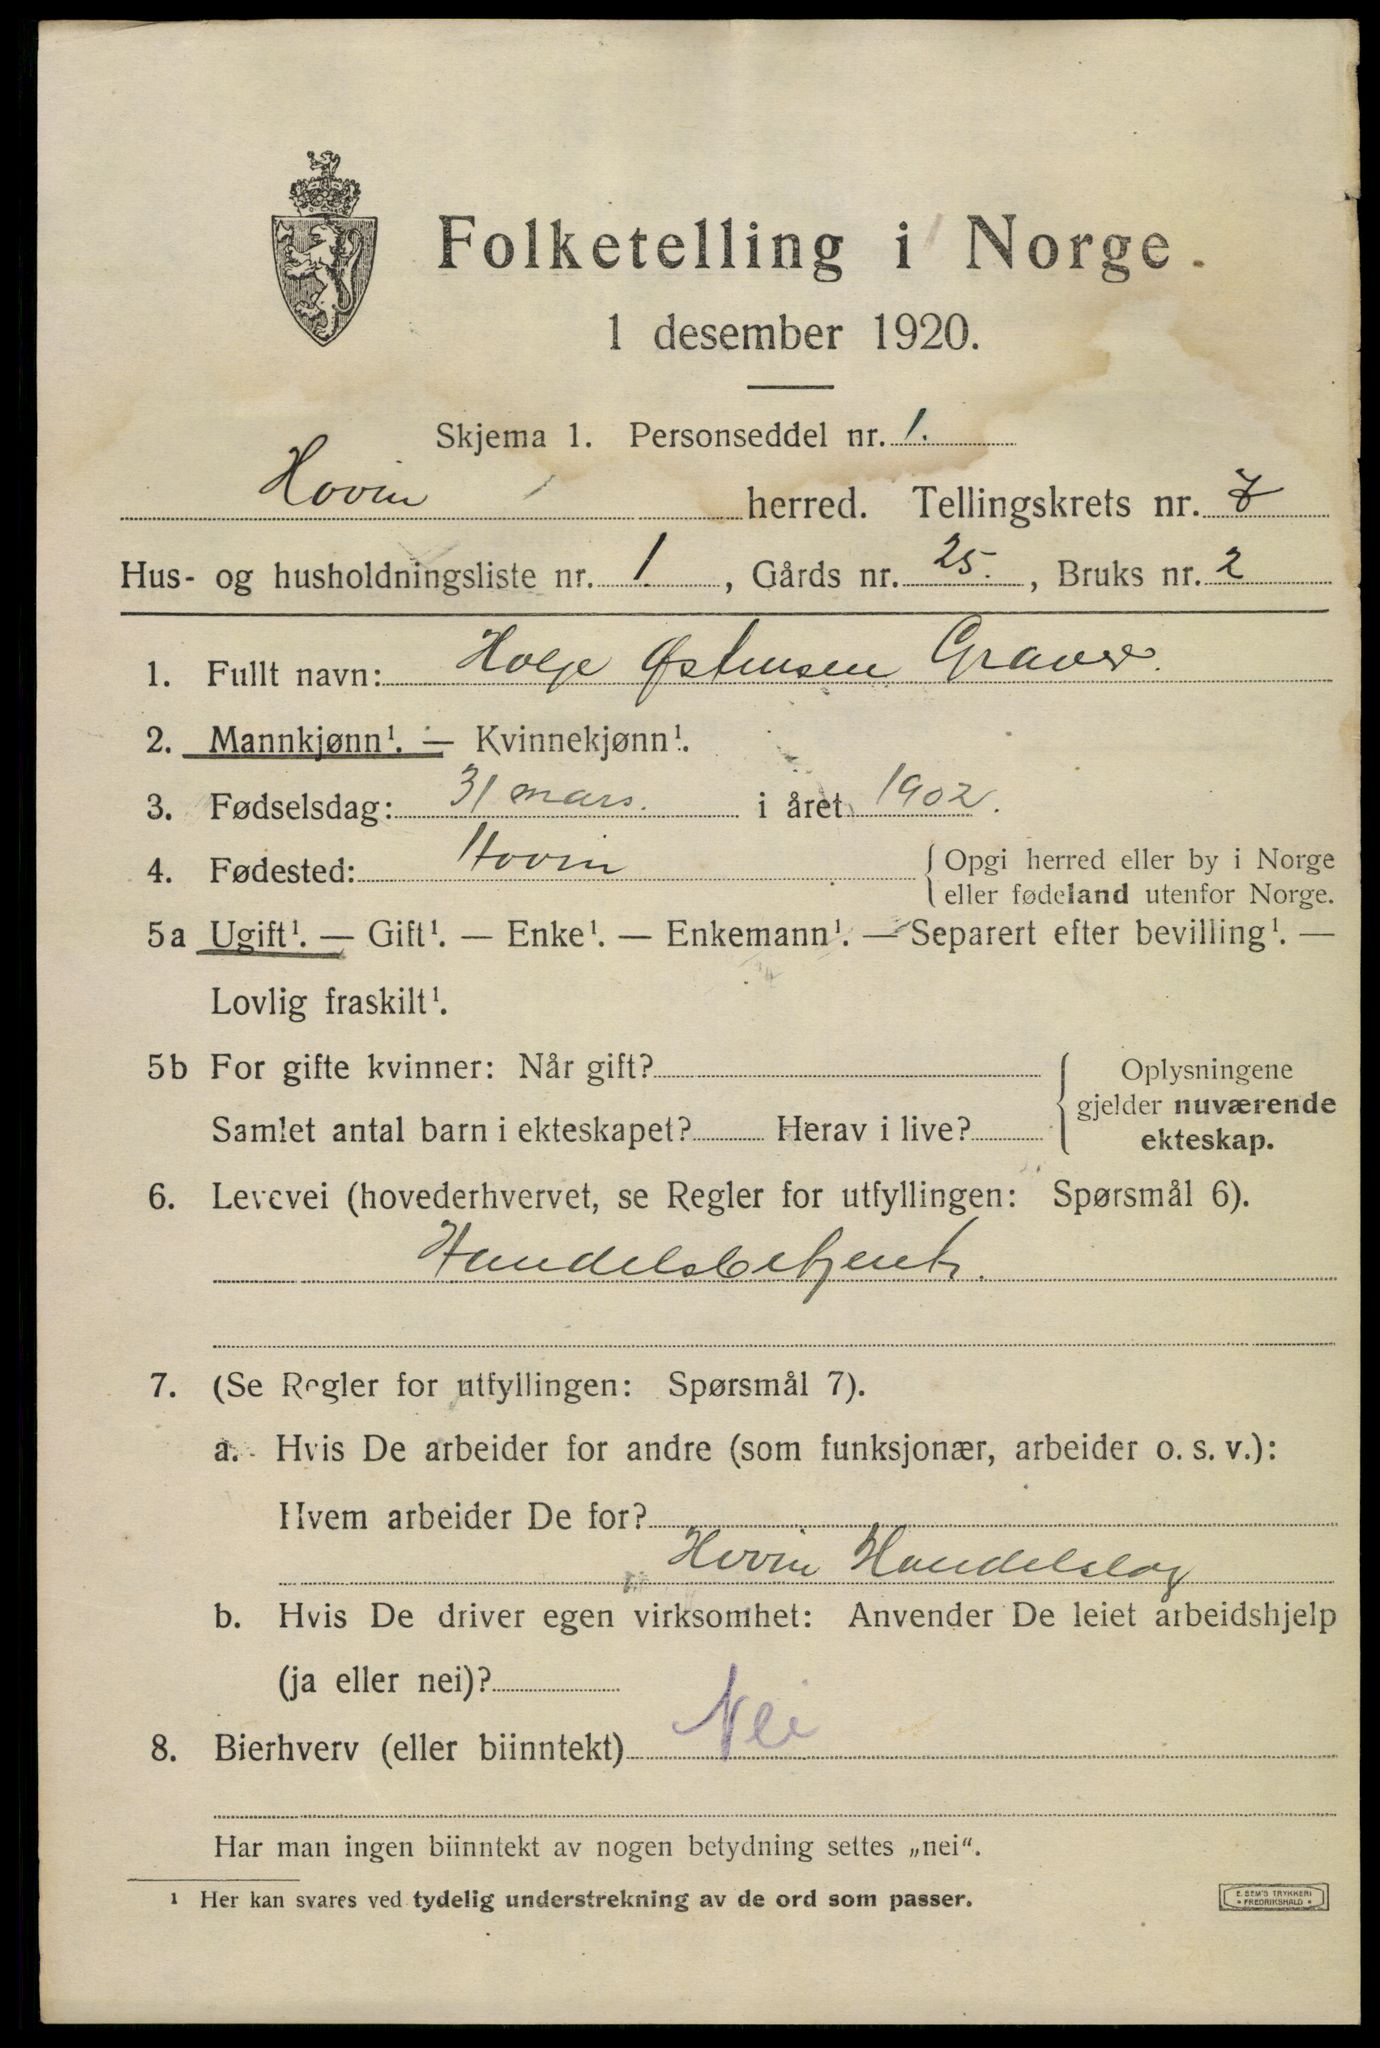 Folketelling i Norge
1 desember 1920.
Skjema 1. Personseddel nr. 1.
Hovin herred. Tellingskrets nr. 7
Hus- og husholdningsliste nr. 1, Gårds nr. 25., Bruks nr. 2
1. Fullt navn: Holje Østensen Graver.
2. Mannkjønn¹. — Kvinnekjønn¹.
3. Fødselsdag: 31 mars. i året 1902.
4. Fødested: Hovin { Opgi herred eller by i Norge
eller fødeland utenfor Norge.
5a Ugift¹. — Gift¹. — Enke¹. — Enkemann¹. — Separert efter bevilling¹. —
Lovlig fraskilt¹.
5b For gifte kvinner: Når gift? { Oplysningene
gjelder nuværende
Samlet antal barn i ekteskapet? Herav i live? ekteskap.
6. Levevei (hovederhvervet, se Regler for utfyllingen: Spørsmål 6).
Handelsbetjent.
7. (Se Regler for utfyllingen: Spørsmål 7).
a. Hvis De arbeider for andre (som funksjonær, arbeider o. s. v.):
Hvem arbeider De for?
Hovin Handelslag
b. Hvis De driver egen virksomhet: Anvender De leiet arbeidshjelp
(ja eller nei)?
8. Bierhverv (eller biinntekt) Nei
Har man ingen biinntekt av nogen betydning settes „nei“.
¹ Her kan svares ved tydelig understrekning av de ord som passer.
E. SEM'S TRYKKERI
* FREDRIKSHALD *